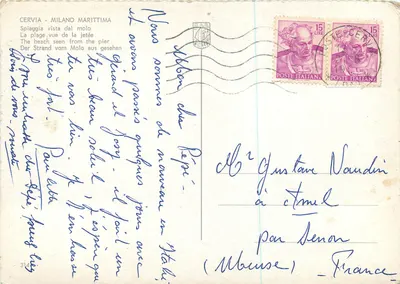 CERVIA - MILANO MARITTIMA
Spiaggia vista dal molo
La plage vue de la jetée
The beach seen from the pier
Der Strand vom Molo aus gesehen
Mon cher Pépé.
Nous sommes de nouveau en Italie
et avons passés quelques jours avec
Gérard et Josy - il fait un
très beau soleil, j'espère que
tu vas bien. Je t'embrasse
très fort.
15
POSTE ITALIANE
15
POSTE ITALIANE
Mr Gustave Naudin
à Amel
par Senon
(Meuse) - France -